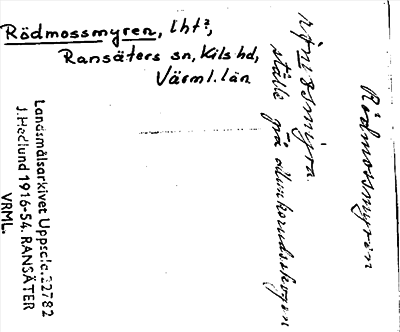 Rödmossmyren, lht?,
Ransäters sn, Kils hd,
Värml. län
ställe på
Rödmossmyren
Landsmålsarkivet Uppsala. 22782
J. Hedlund 1916-54. RANSÄTER
VRML.